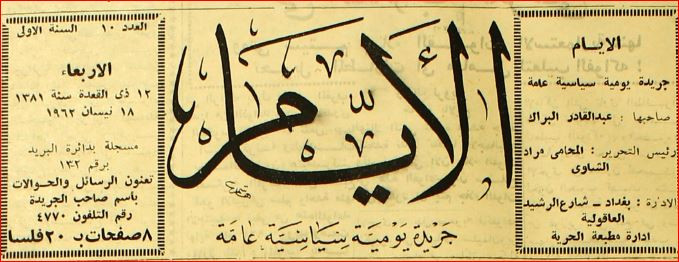 الايام
جريدة يومية سياسية عامة
صاحبها : عبدالقادر البراك
رئيس التحرير : المحامي مراد
الشاوى
الادارة : بغداد ــ شارع الرشيد
العاقولية
ادارة مطبعة الحرية
الأيام
جريدة يومية سياسية عامة
العدد ١٠ السنة الاولى
الاربعاء
١٢ ذى القعدة سنة ١٣٨١
١٨ نيسان ١٩٦٢
مسجلة بدائرة البريد
برقم ١٣٢
تعنون الرسائل والحوالات
باسم صاحب الجريدة
رقم التلفون ٤٧٧٠
٨ صفحات بـ ٢٠ فلسا